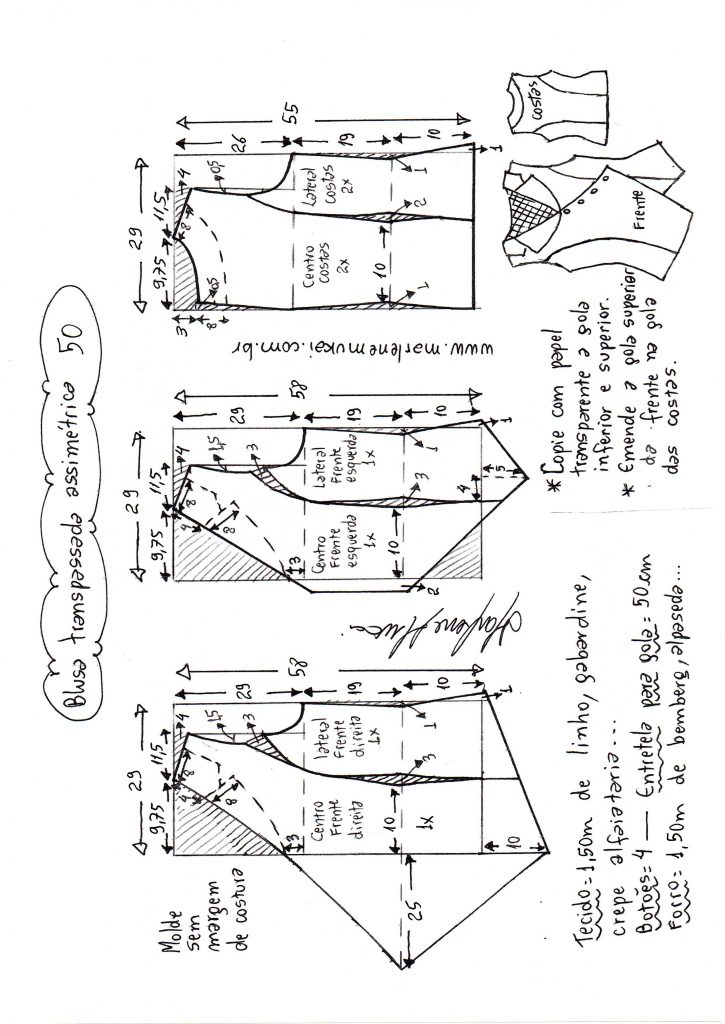 Blusa transpassada assimétrica 50
Molde
sem
margem
de costura
29
9,75
11,5
4
4
8
8
1,5
3
3
58
29
19
10
lateral
Frente
direita
1x
Centro
Frente
direita
1x
10
3
1
1
25
10
29
9,75
11,5
4
4
8
8
1,5
3
3
58
29
19
10
Lateral
Frente
esquerda
1x
Centro
Frente
esquerda
1x
10
3
1
1
2
4
5
www.marlenemukai.com.br
29
9,75
11,5
4
8
0,5
0,5
3
8
55
26
19
10
Lateral
costas
2x
Centro
costas
2x
10
2
1
1
1
Tecido=1,50m de linho, gabardine,
crepe alfaiataria...
Botões=4 — Entretela para gola=50cm
Forro=1,50m de bemberg, alpaseda...
* Copie com papel
transparente a gola
inferior e superior.
* Emende a gola superior
da frente na gola
das costas.
Frente
costas